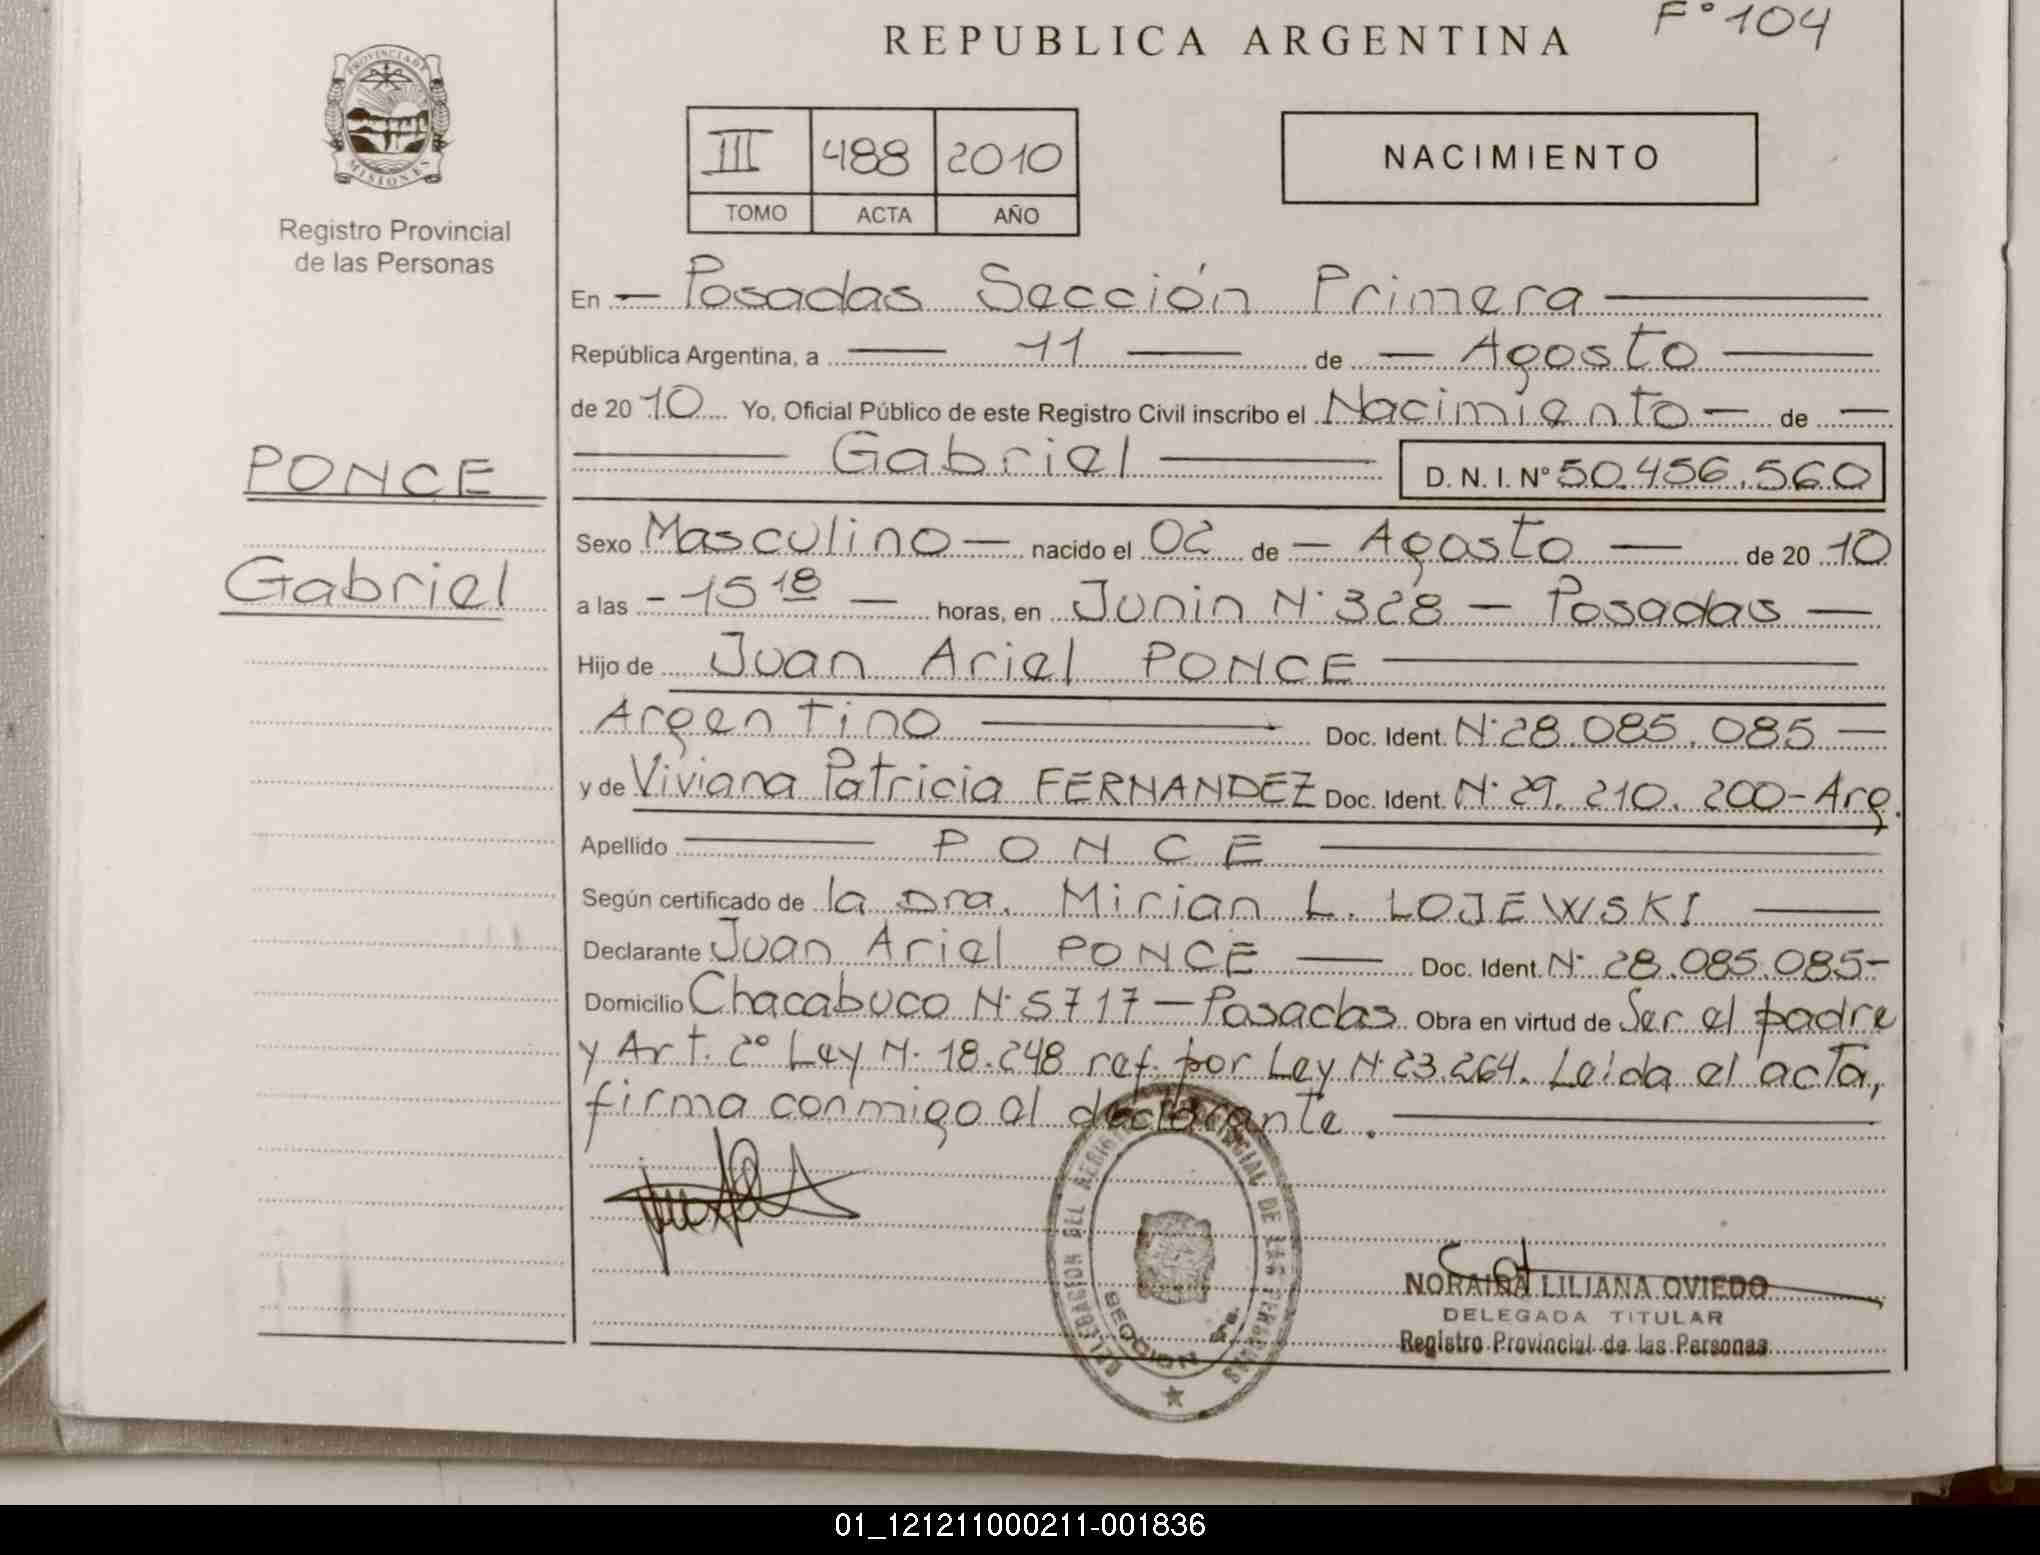 REPUBLICA ARGENTINA
F° 104
PROVINCIA DE
MISIONES
Registro Provincial
de las Personas
III 488 2010
TOMO ACTA AÑO
NACIMIENTO
En — Posadas Sección Primera —
República Argentina, a — 11 — de — Agosto —
de 20 10 Yo, Oficial Público de este Registro Civil inscribo el Nacimiento — de —
— Gabriel — D. N. I. N° 50.456.560
PONCE
Gabriel
Sexo Masculino — nacido el 02 de — Agosto — de 20 10
a las - 15 18 — horas, en Junin N° 328 — Posadas —
Hijo de Juan Ariel PONCE —
Argentino — Doc. Ident. N° 28.085.085 —
y de Viviana Patricia FERNANDEZ Doc. Ident. N° 29.210.200 - Arg.
Apellido — PONCE —
Según certificado de la Dra. Mirian L. LOJEWSKI —
Declarante Juan Ariel PONCE — Doc. Ident. N° 28.085.085-
Domicilio Chacabuco N° 5717 — Posadas Obra en virtud de Ser el padre
y Art. 2° Ley N° 18.248 ref. por Ley N° 23.264. Leida el acta,
firma conmigo el declarante. —
DE LAS PERSONAS
SECCION 1ra.
NORAIDA LILIANA OVIEDO
DELEGADA TITULAR
Registro Provincial de las Personas
01_121211000211-001836